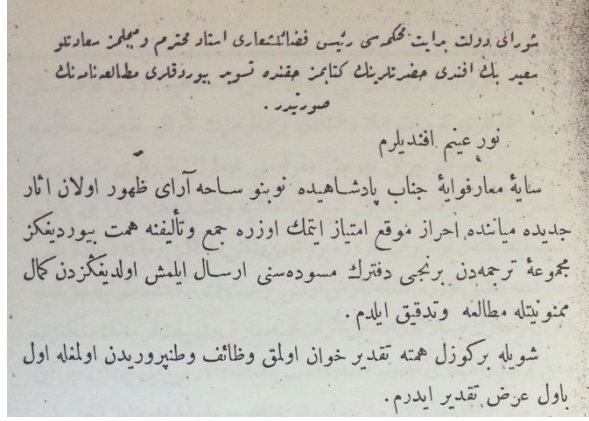 شورای دولت بدایت محكمه‌سی رئیس فضائلشعاری استاد محترم و مبجلمز سعادتلو
سعید بك افندی حضرتلرینك كتابمز حقنده تسوید بیوردقلری مطالعه‌نامه‌نك
صورتیدر.
نور عینم افندیلرم
سایهٔ معارفوایهٔ جناب پادشاهیده نوبنو ساحه آرای ظهور اولان اثار
جدیده میاننده احراز موقع امتیاز ایتمك اوزره جمع وتألیفنه همت بیوردیغكز
مجموعهٔ ترجمه‌دن برنجی دفترك مسوده‌سنی ارسال ایلمش اولدیغكزدن كمال
ممنونیتله مطالعه وتدقیق ایلدم.
شویله بركوزل همته تقدیر خوان اولمق وظائف وطنپروریدن اولمغله اول
باول عرض تقدیر ایدرم.